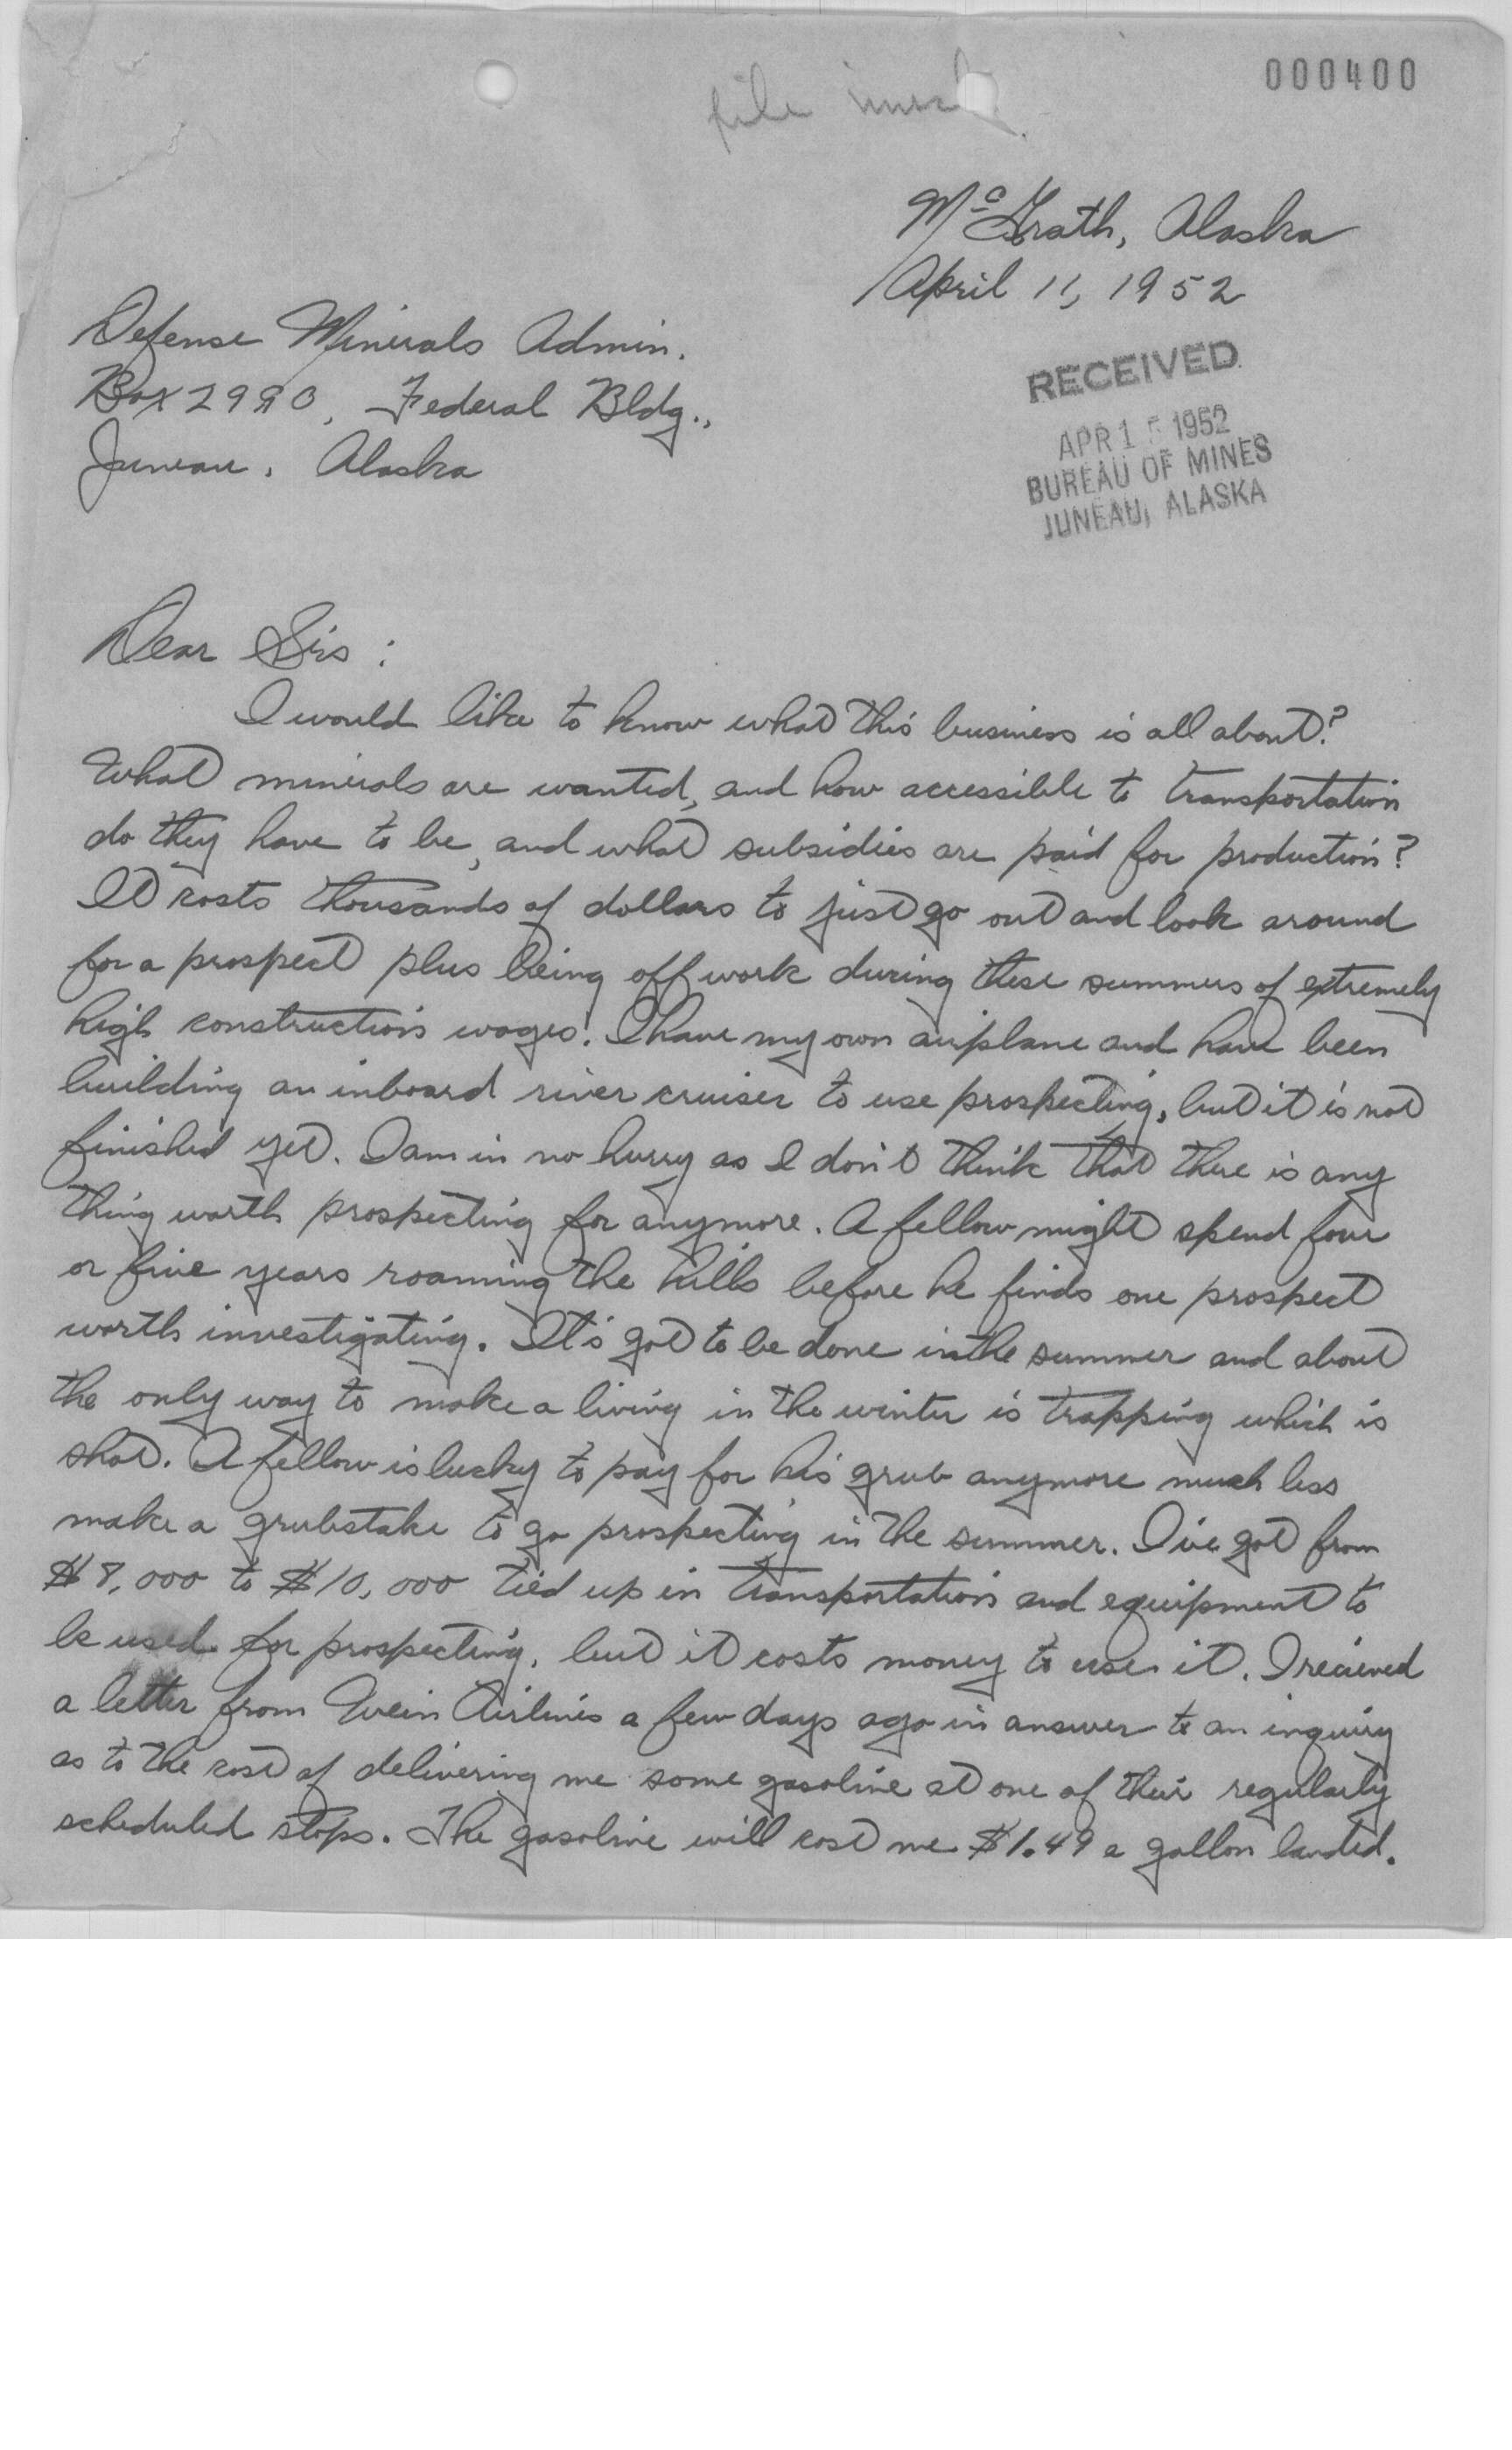 000400
file
McGrath, Alaska
April 11, 1952
Defense Minerals Admin.
Box 2990, Federal Bldg.,
Juneau, Alaska
RECEIVED
APR 1 1952
BUREAU OF MINES
JUNEAU, ALASKA
Dear Sirs:
I would like to know what this business is all about?
What minerals are wanted, and how accessible to transportation
do they have to be, and what subsidies are paid for production?
It costs thousands of dollars to just go out and look around
for a prospect plus being off work during these summers of extremely
high construction wages. I have my own airplane and have been
building an inboard river cruiser to use prospecting, but it is not
finished yet. I am in no hurry as I don't think that there is any
thing worth prospecting for anymore. A fellow might spend four
or five years roaming the hills before he finds one prospect
worth investigating. It's got to be done in the summer and about
the only way to make a living in the winter is trapping which is
shot. A fellow is lucky to pay for his grub anymore much less
make a grubstake to go prospecting in the summer. I've got from
$8,000 to $10,000 tied up in transportation and equipment to
be used for prospecting, but it costs money to use it. I recieved
a letter from Wein Airlines a few days ago in answer to an inquiry
as to the cost of delivering me some gasoline at one of their regularly
scheduled stops. The gasoline will cost me $1.49 a gallon landed.